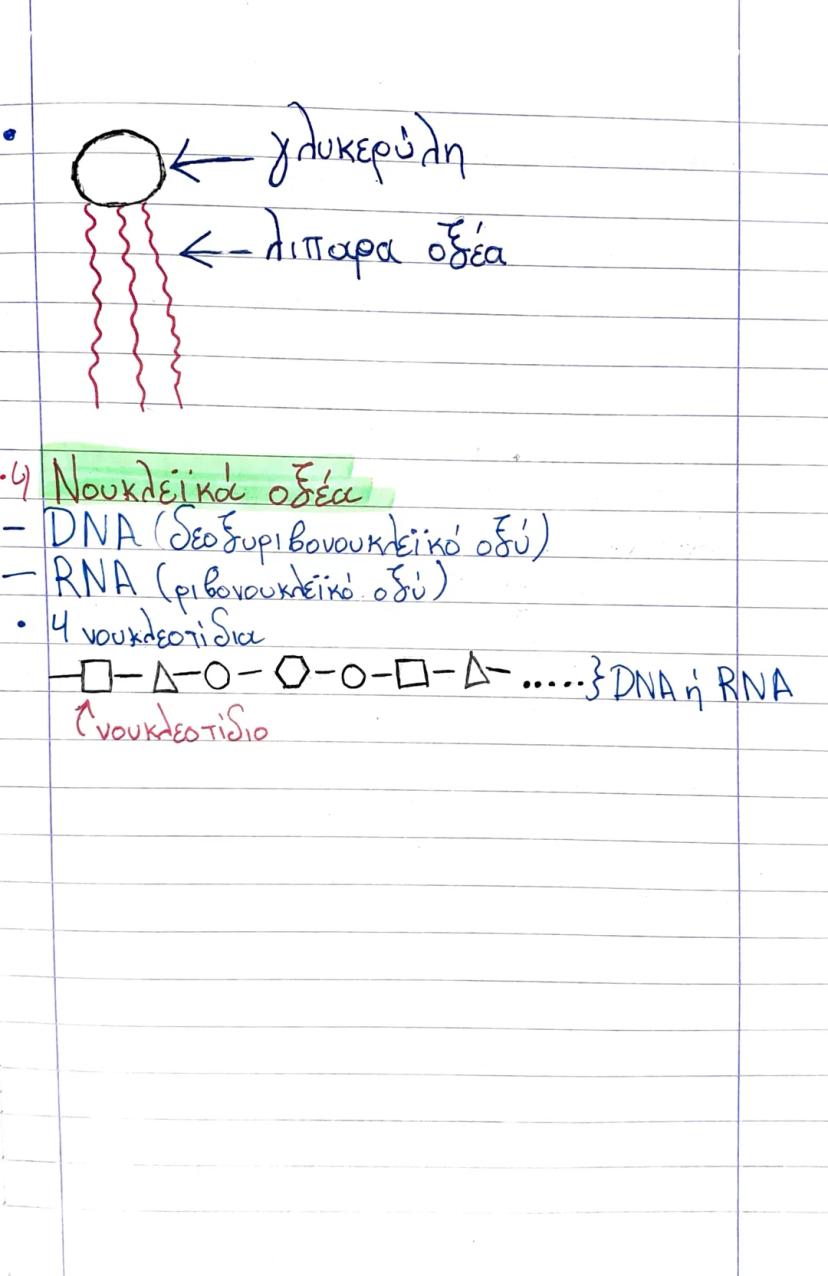 • ← γλυκερύλη
← λιπαρα οξέα
.4) Νουκλεϊκά οξέα
- DNA (δεοξυριβονουκλεϊκό οξύ)
- RNA (ριβονουκλεϊκό οξύ)
• 4 νουκλεοτίδια
.....} DNA ή RNA
↑ νουκλεοτίδιο